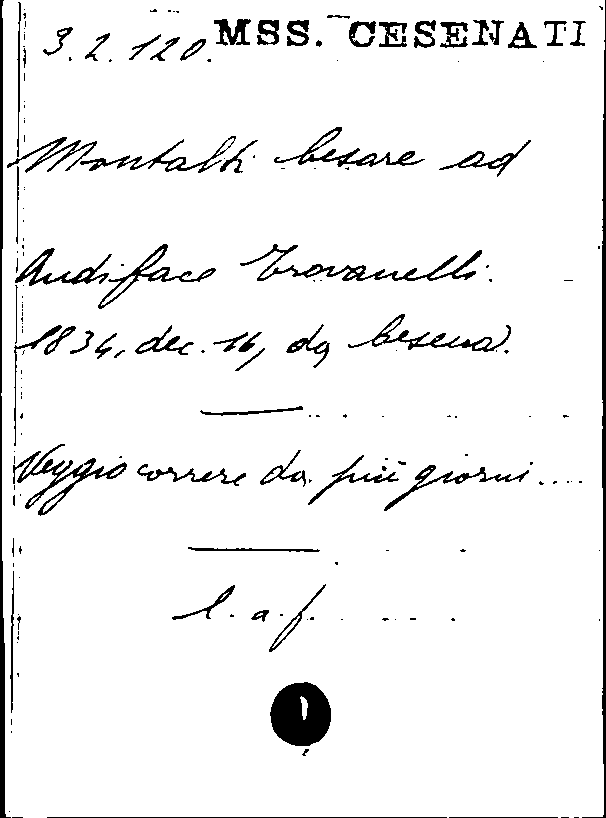 3.2.120. MSS. CESENATI
Montalti Cesare ad
Audiface Trovanelli.
1834, dec. 16, da Cesena.
Veggio correre da più giorni....
l. a. f.